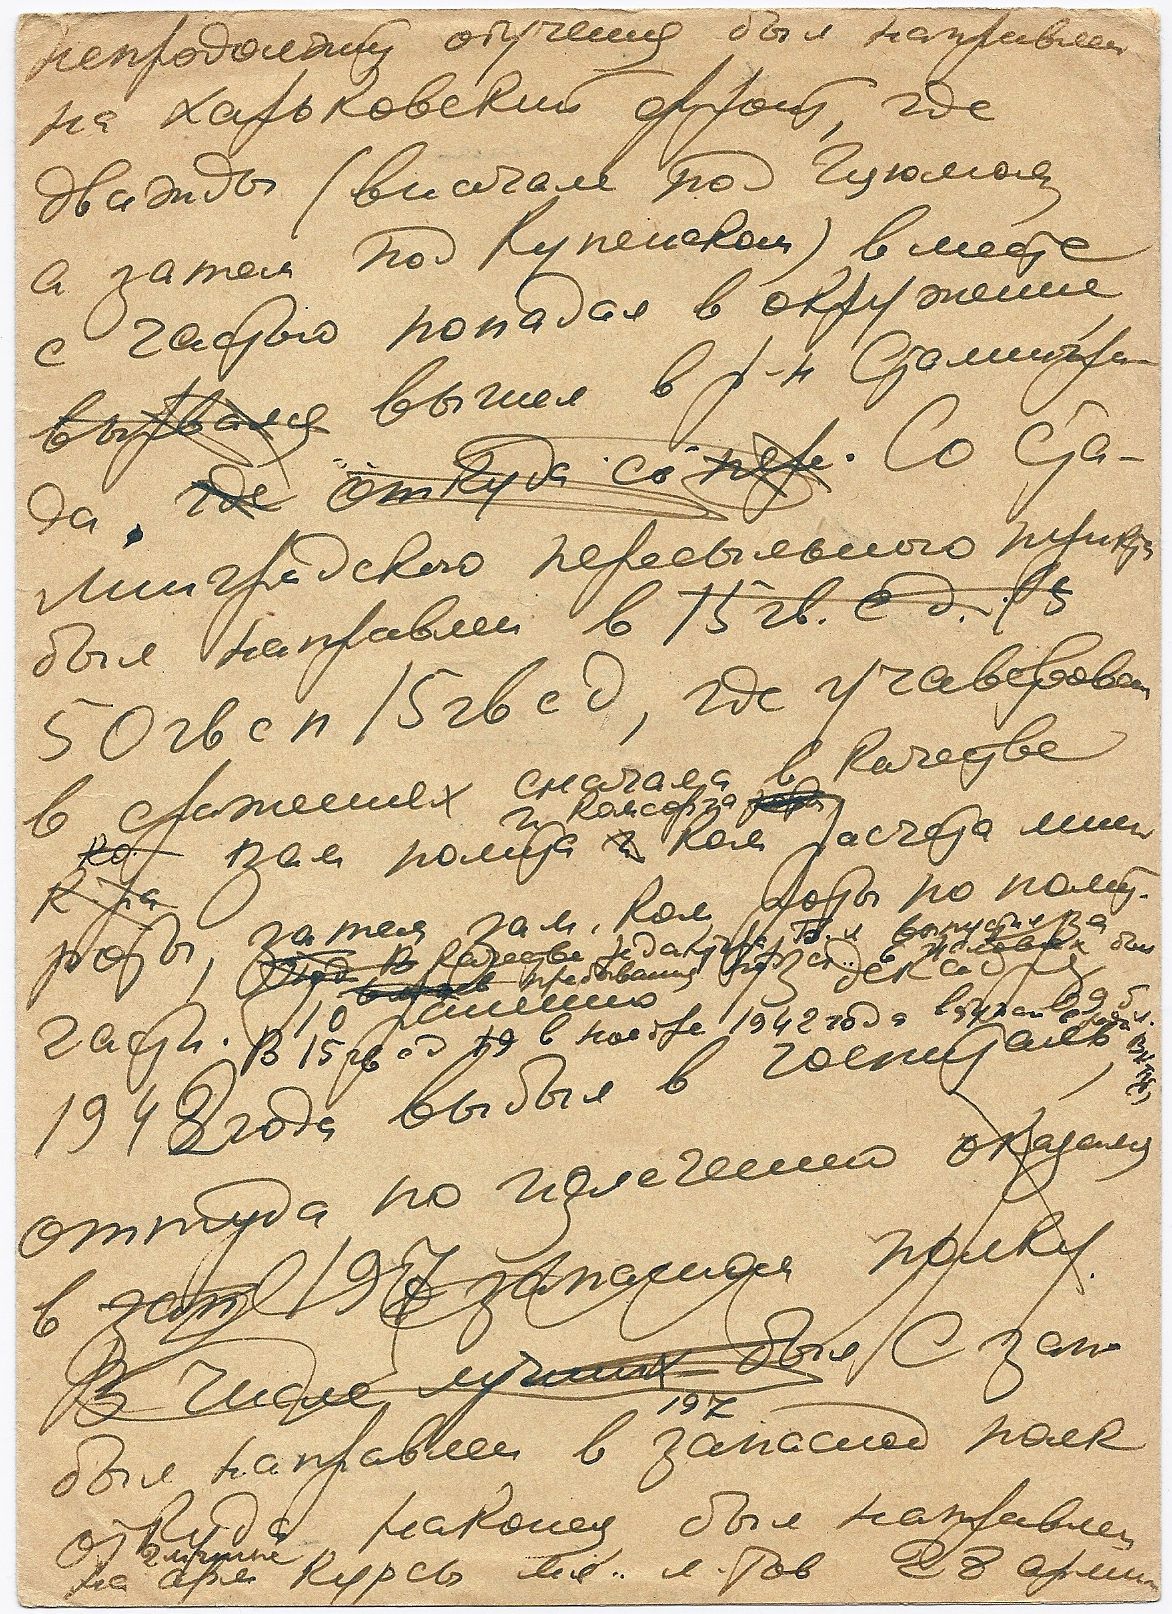 непродолжит обучения был направлен
на харьковский фронт, где
дважды (вначале под Изюмом
а затем под Купенском) вместе
с частью попадал в окружение,
вырвался вышел в р-н Сталингра-
да, где откуда со пер. Со Ста-
линградского пересыльного пункта
был направлен в 15 гв. с д. (5
50 гв с п 15 гв с д, где участвовал
в сражениях сначала в качестве
и комсорга
ко зам полита и ком расчета мин
к ра
роты, затем зам. ком роты по полит.
в качестве редактора выпустил за
пребывания из декад
части. 10
В 15 гв сд 19 в ноябре 1942 года вступил
1942 года выбыл в госпиталь,
оттуда по излечению оказался
в зап 197 запасном полку.
В числе лучших был С зап
197
был направлен в запасной полк
откуда наконец был направлен
на арм курсы мл. л-тов 28 армии